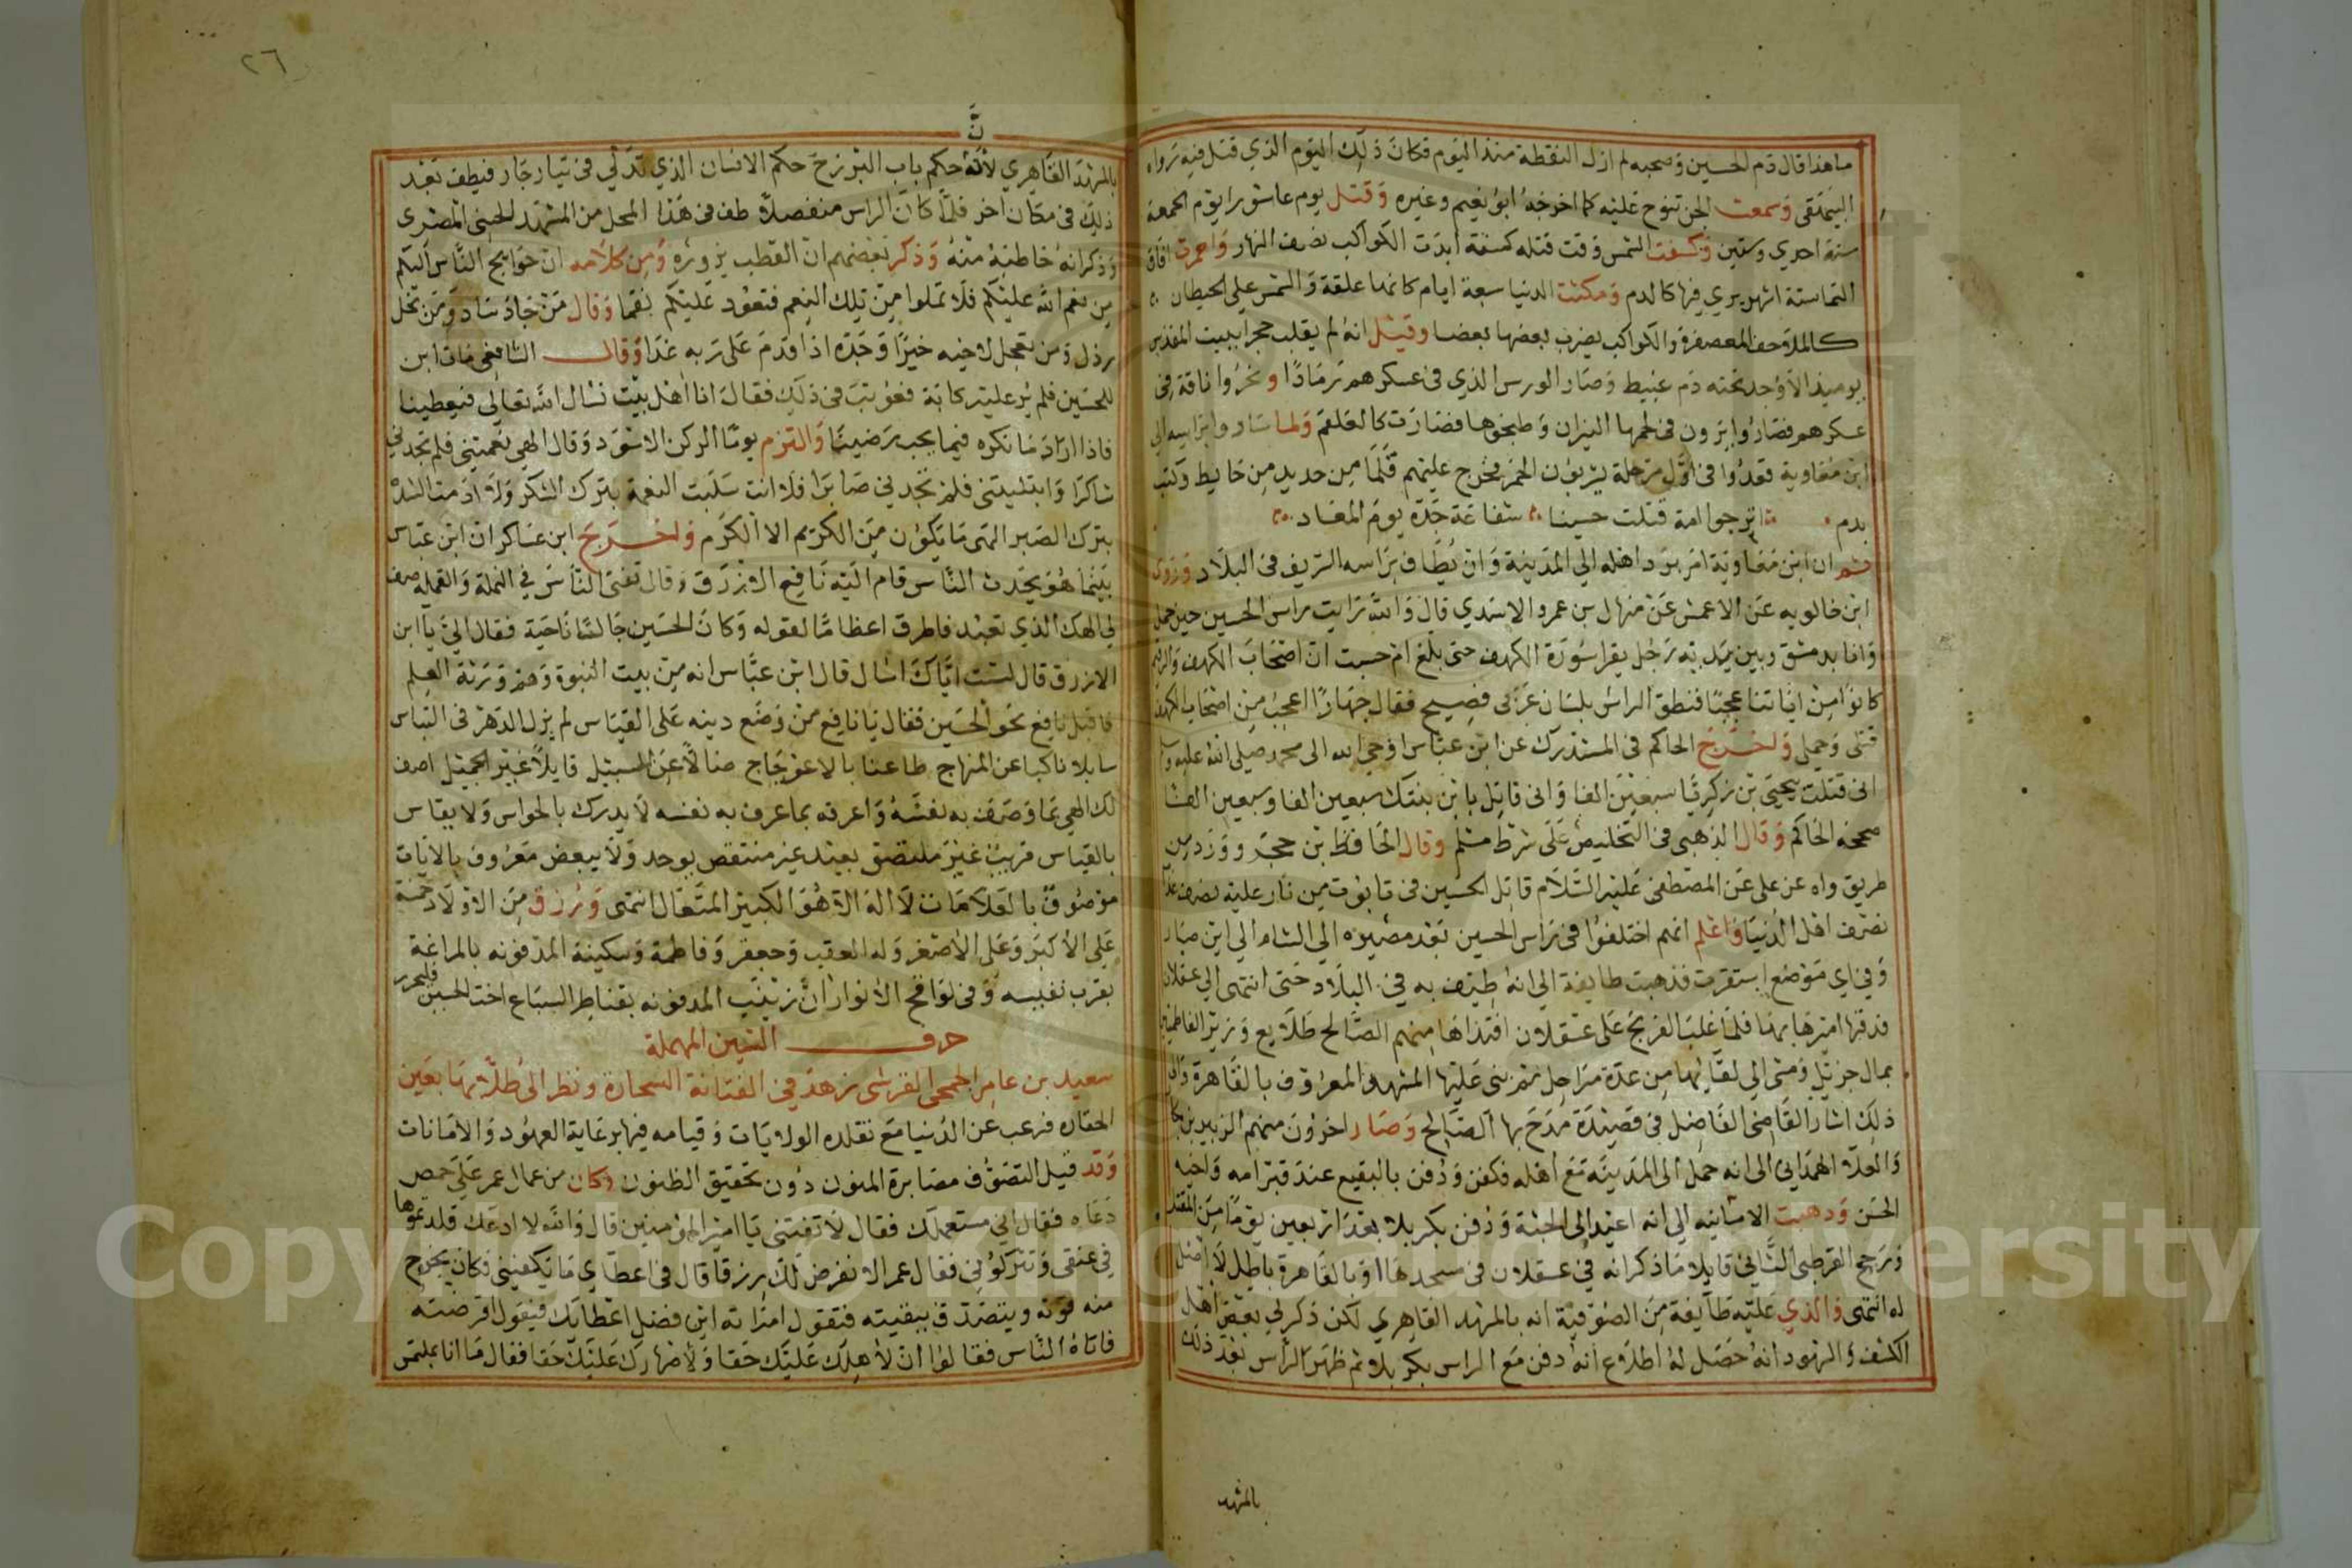 ما هذا قال دم الحسين وصحبه لم ازل التقطه منذ اليوم فكان ذلك اليوم الذي قتل فيه رواه
البيهقى وسمعت الجن تنوح عليه كما اخرجه ابو نعيم وغيره وقتل يوم عاشورا يوم الجمعة
سنة احدي وستين وكسفت الشمس وقت قتله كسفة ابدت الكواكب نصف النهار واحمرت افاق
السما ستة اشهر يري فيها كالدم ومكثت الدنيا سبعة ايام كانما علقة والشمس علي الحيطان
كالملاحف المعصفرة والكواكب يضرب بعضها بعضا وقيل انه لم يقلب حجر ببيت المقدس
يوميذ الا وجد تحته دم عبيط وصار الورس الذي فى عسكرهم رمادا ونحروا ناقة فى
عسكرهم فصاروا يرون فى لحمها النيران وطبخوها فصارت كالعلقم ولما ساروا براسه الي
ابن معاوية قعدوا فى اول مرحلة يشربون الخمر فخرج عليهم قلما من حديد من حايط وكتب
بدم اترجوا امة قتلت حسينا شفاعة جده يوم المعاد
ثم ان ابن معاوية امر برد اهله الي المدينة وان يطاف براسه الشريف فى البلاد وروى
ابن خالويه عن الاعمش عن منهال بن عمرو الاسدي قال والله رايت راس الحسين حين حمل
وانا بدمشق وبين يديه رجل يقرا سورة الكهف حتى بلغ ام حسبت ان اصحاب الكهف والرقيم
كانوا من اياتنا عجبا فنطق الراس بلسان عربى فصيح فقال جهارا اعجب من اصحاب الكهف
قتلى وحملى واخرج الحاكم فى المستدرك عن ابن عباس اوحى الله الى محمد صلى الله عليه وسلم
انى قتلت بيحيى بن زكريا سبعين الفا وانى قاتل بابن بنتك سبعين الفا وسبعين الفا
صححه الحاكم وقال الذهبى فى التخليص على شرط مسلم وقال الحافظ بن حجر وورد من
طريق واه عن على عن المصطفى عليه السلام قاتل الحسين فى تابوت من نار عليه نصف عذاب
نصف اهل الدنيا واعلم انهم اختلفوا فى راس الحسين بعد مصيره الي الشام الي اين صار
وفى اي موضع استقرت فذهبت طايفة الي انه طيف به فى البلاد حتى انتهى الي عسقلان
فدفنها اميرها بها فلما غلب الفرنج على عسقلان افتداها منهم الصالح طلايع وزير الفاطميين
بمال جزيل ومشى الي لقايها من عدة مراحل ثم بنى عليها المشهد المعروف بالقاهرة والي
ذلك اشار القاضى الفاضل فى قصيدة مدح بها الصالح وصار اخرون منهم الزبير بن بكار
والعلا الهمدانى الى انه حمل الى المدينة مع اهله فكفن ودفن بالبقيع عند قبر امه واخيه
الحسن وذهبت الامامية الي انه اعيد الي الجثة ودفن بكربلا بعد اربعين يوما من المقتل
ورجح القرطبى الثانى قايلا ما ذكر انه فى عسقلان فى مسجدها او بالقاهرة باطل لا اصل
له انتهى والذي عليه طايفة من الصوفية انه بالمشهد القاهري لكن ذكر لي بعض اهل
الكشف والشهود انه حصل له اطلاع انه دفن مع الراس بكربلا ثم ظهر الراس بعد ذلك
بالمشهد
٢٦
بالمشهد القاهري لانه حكم باب البرزخ حكم الانسان الذي تدلي فى تيار جار فيطف بعد
ذلك فى مكان اخر فلما كان الراس منفصلا طف فى هذا المحل من المشهد الحسينى المصرى
وذكر انه خاطبه منه وذكر بعضهم ان القطب يزوره ومن كلامه ان حوايج الناس اليكم
من نعم الله عليكم فلا تملوا من تلك النعم فتعود عليكم نقما وقال من جاد ساد ومن بخل
رذل ومن تعجل لاخيه خيرا وجده اذا قدم على ربه غدا وقال الشافعى مات ابن
للحسين فلم ير عليه كابة فعوتب فى ذلك فقال انا اهل بيت نسال الله تعالى فيعطينا
فاذا اراد ما نكره فيما يحب رضينا والتزم يوما الركن الاسود وقال الهي نعمتنى فلم تجدنى
شاكرا وابتليتنى فلم تجدني صابرا فلا انت سلبت النعمة بترك الشكر ولا ادمت الشدة
بترك الصبر الهى ما يكون من الكريم الا الكرم واخرج ابن عساكر ان ابن عباس
بينما هو يحدث الناس قام اليه نافع الازرق وقال تفتى الناس فى النملة والقملة صف
لي الهك الذي تعبد فاطرق اعظاما لقوله وكان الحسين جالسا ناحية فقال الي يا ابن
الازرق قال لست اياك اسال قال ابن عباس انه من بيت النبوة وهم ورثة العلم
فاقبل نافع نحو الحسين فقال يا نافع من وضع دينه على القياس لم يزل الدهر فى التباس
سايلا ناكبا عن المنهاج طاعنا بالاعوجاج ضالا عن السبيل قايلا غير الجميل اصف
لك الهي بما وصف به نفسه واعرفه بما عرف به نفسه لا يدرك بالحواس ولا يقاس
بالقياس قريب غير ملتصق بعيد غير منتقص يوحد ولا يبعض معروف بالايات
موصوف بالعلامات لا اله الا هو الكبير المتعال انتهى ورزق من الاولاد خمسة
على الاكبر وعلى الاصغر وله العقب وجعفر وفاطمة وسكينة المدفونه بالمراغة
بقرب نفيسه وفى لواقح الانوار ان زينب المدفونه بقناطر السباع اخت الحسين فليحرر
حرف السين المهملة
سعيد بن عامر الجمحى القرشى زهد فى الفتانة السحارة ونظر الى طلابها بعين
الحقاره فرغب عن الدنيا مع تقلده الولايات وقيامه فيها برعاية العهود والامانات
وقد قيل التصوف مصابرة المنون دون تحقيق الظنون وكان من عمال عمر على حمص
دعاه فقال اني مستعملك فقال لا تفتنى يا امير المومنين قال والله لا ادعك قلدتموها
فى عنقى وتتركونى فقال عمر الا نفرض لك رزقا قال فى اعطاي ما يكفينى فكان يخرج
منه قوته ويتصدق ببقيته فتقول امراته اين فضل اعطايك فيقول اقرضته
فاتاه الناس فقالوا ان لاهلك عليك حقا ولاصهارك عليك حقا فقال ما انا بملتمس
Copyright © King Saud University